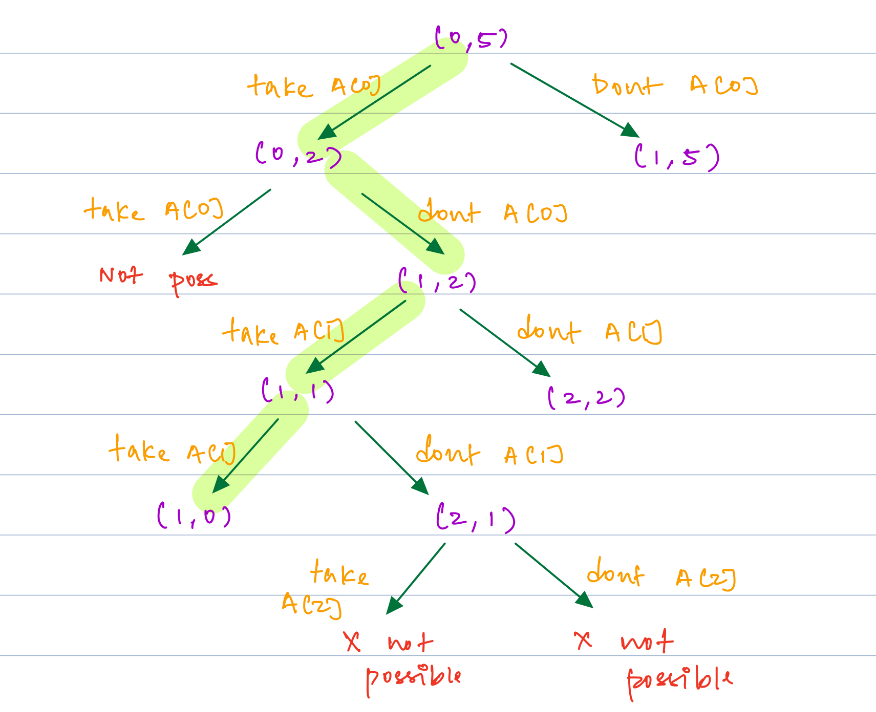 (0,5)
take A[0]
Dont A[0]
(0,2)
(1,5)
take A[0]
dont A[0]
Not poss
(1,2)
take A[1]
dont A[1]
(1,1)
(2,2)
take A[1]
dont A[1]
(1,0)
(2,1)
take
A[2]
dont A[2]
X not
possible
X not
possible